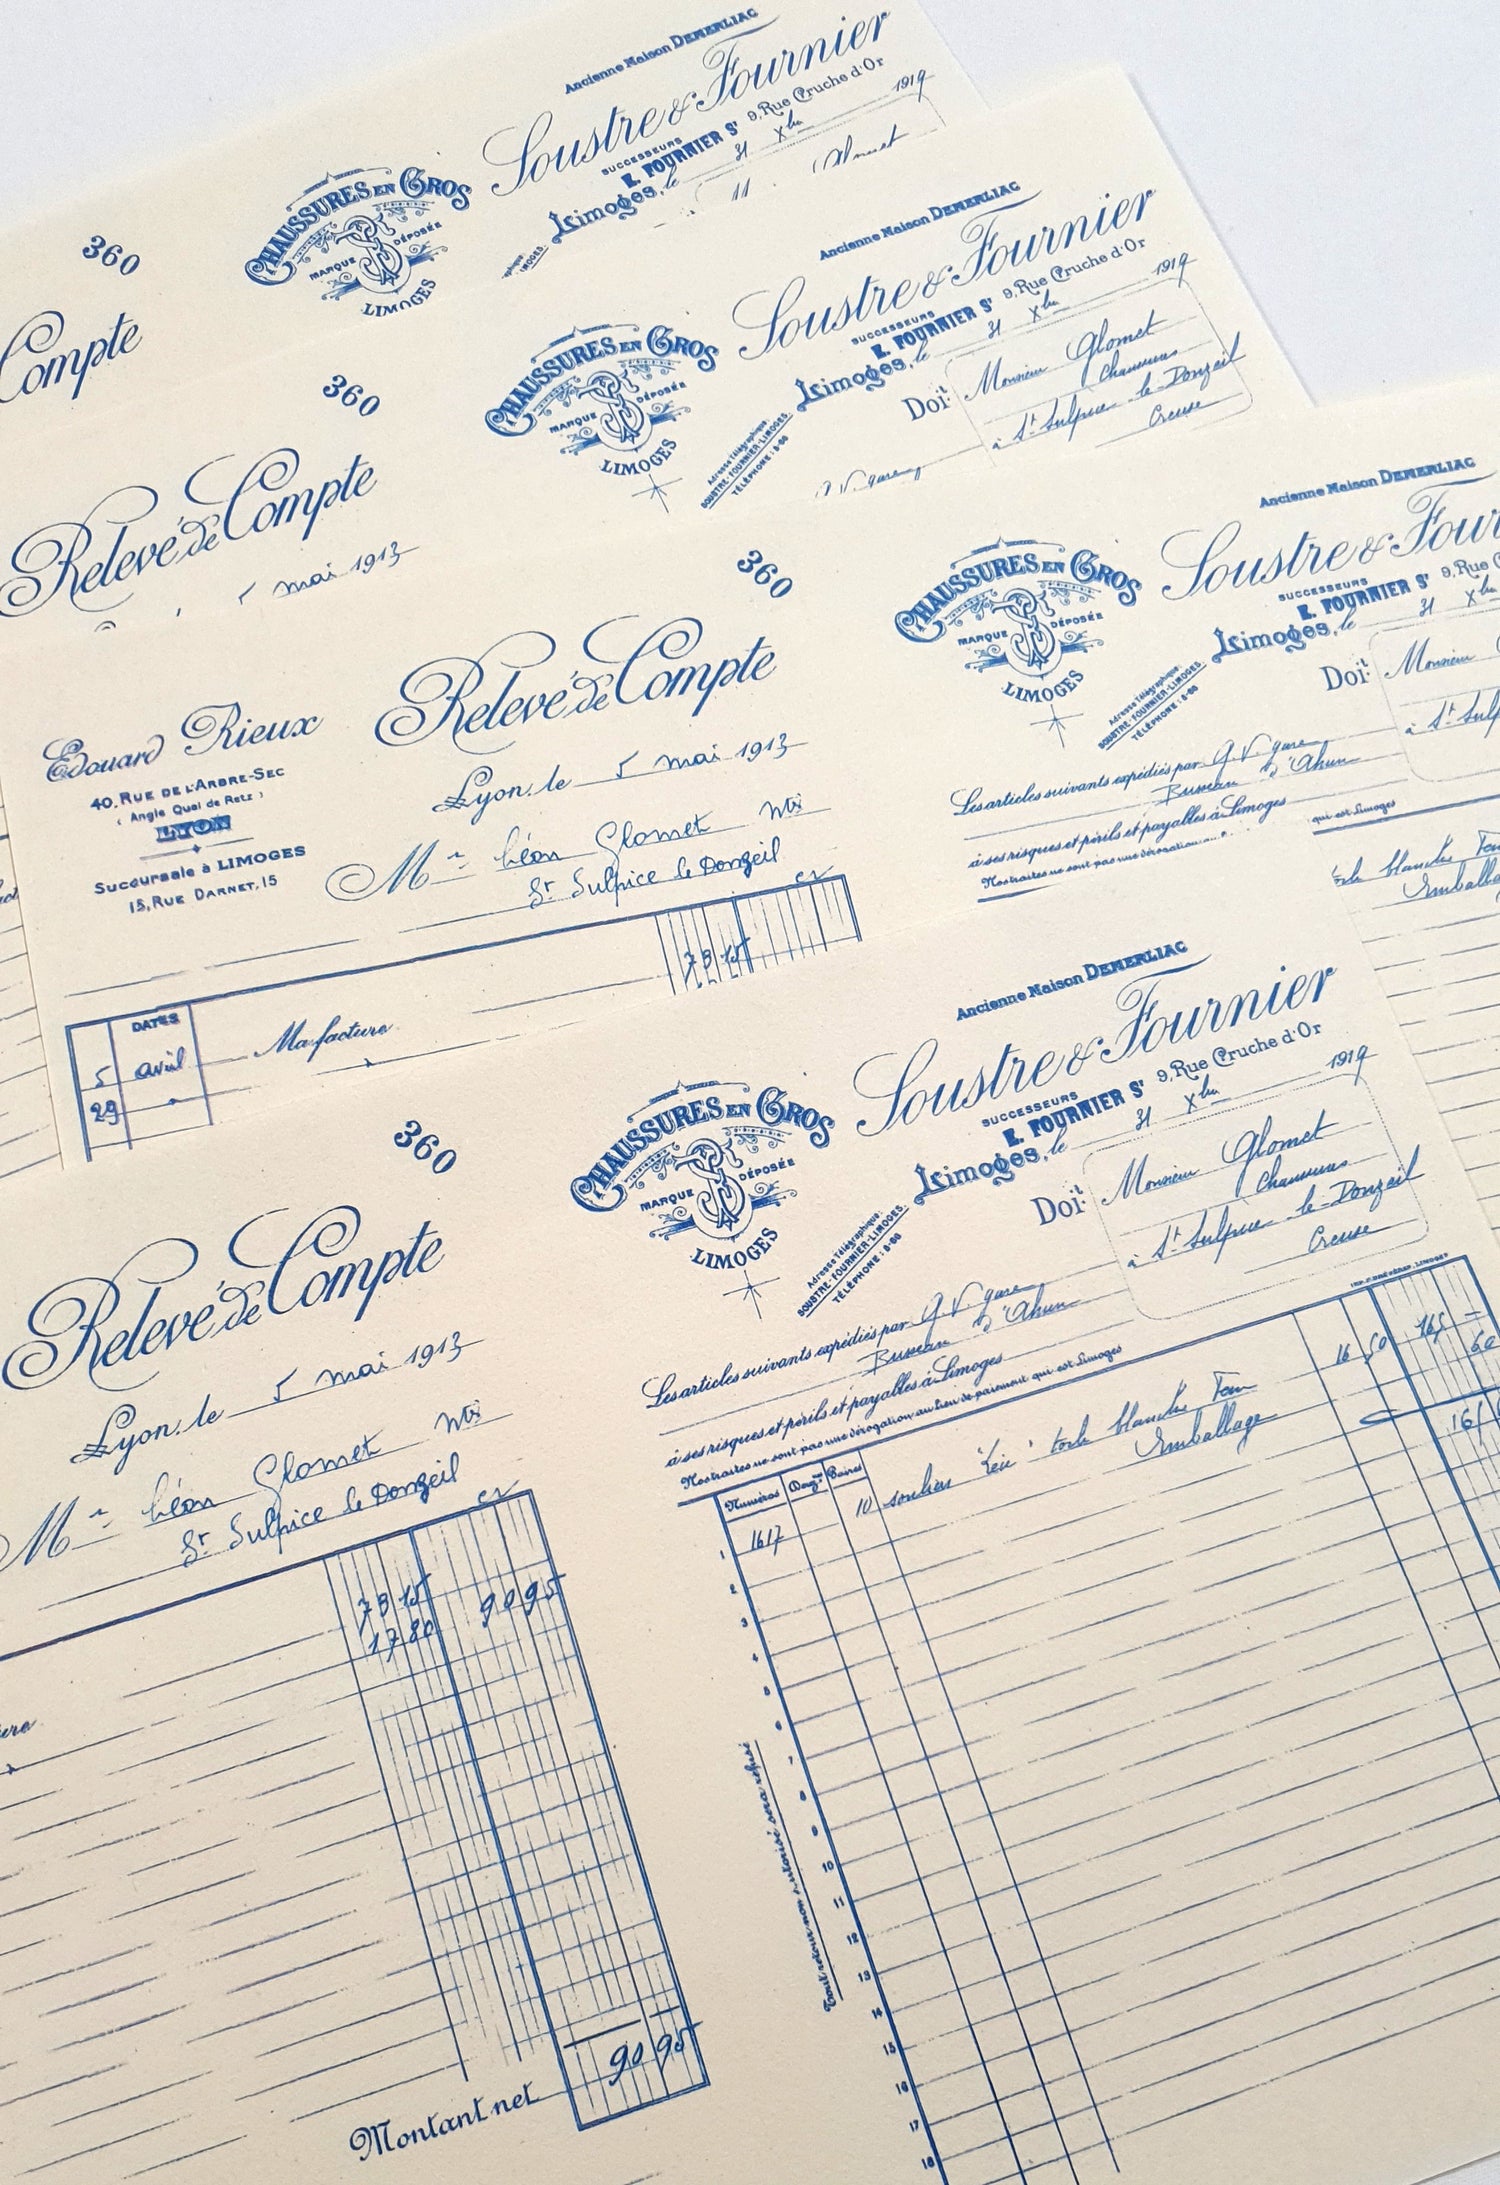 Ancienne Maison DEMERLIAC
Soustre & Fournier
SUCCESSEURS
E. FOURNIER Sr 9, Rue Cruche d'Or
Limoges, le 31 Xbre 1919
CHAUSSURES EN GROS
MARQUE DÉPOSÉE
LIMOGES
360
Compte
Ancienne Maison DEMERLIAC
Soustre & Fournier
SUCCESSEURS
E. FOURNIER Sr 9, Rue Cruche d'Or
Limoges, le 31 Xbre 1919
CHAUSSURES EN GROS
MARQUE DÉPOSÉE
LIMOGES
Adresse Télégraphique:
SOUSTRE-FOURNIER-LIMOGES
TÉLÉPHONE: 5-60
Doit Monsieur Glomet
à St Sulpice-le-Donzeil
Creuse
G. V. gare
360
Relevé de Compte
5 mai 1913
Ancienne Maison DEMERLIAC
Soustre & Four
SUCCESSEURS
E. FOURNIER Sr 9, Rue C
Limoges, le 31 Xbre
CHAUSSURES EN GROS
MARQUE DÉPOSÉE
LIMOGES
Adresse Télégraphique:
SOUSTRE-FOURNIER-LIMOGES
TÉLÉPHONE: 5-60
Doit Monsieur
à St Sulp
Les articles suivants expédiés par G. V. gare
Busseau d'Ahun
à ses risques et périls et payables à Limoges
Nos traites ne sont pas une dérogation
qui est Limoges
blanches
Emballag
360
Relevé de Compte
Edouard Rieux
40, RUE DE L'ARBRE-SEC
(Angle Quai de Retz)
LYON
Succursale à LIMOGES
15, RUE DARNET, 15
Lyon, le 5 mai 1913
Mr Léon Glomet
St Sulpice le Donzeil
73 15
DATES
5 avril Ma facture
29 "
360
Relevé de Compte
Lyon, le 5 mai 1913
Mr Léon Glomet
St Sulpice le Donzeil
73 15
17 80 90 95
Montant net 90 95
Ancienne Maison DEMERLIAC
Soustre & Fournier
SUCCESSEURS
E. FOURNIER Sr 9, Rue Cruche d'Or
Limoges, le 31 Xbre 1919
CHAUSSURES EN GROS
MARQUE DÉPOSÉE
LIMOGES
Adresse Télégraphique:
SOUSTRE-FOURNIER-LIMOGES
TÉLÉPHONE: 5-60
Doit Monsieur Glomet
à St Sulpice-le-Donzeil
Creuse
Les articles suivants expédiés par G. V. gare
Busseau d'Ahun
à ses risques et périls et payables à Limoges
Nos traites ne sont pas une dérogation au lieu de paiement qui est Limoges
Numéros Douznes Paires
1 1617 10 souliers toile blanche 16 50 165 —
Emballage 60
2
3
4
5
6
7
8
9
10
11
12
13
14
15
16
17
18
Tout retour non autorisé sera refusé